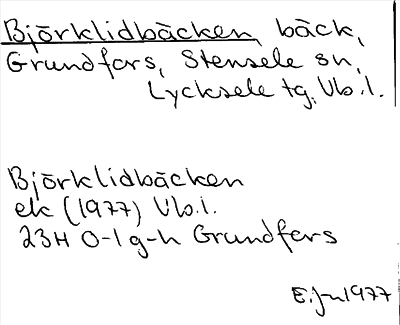 Björklidbäcken, bäck,
Grundfors, Stensele sn,
Lycksele tg, Vb.l.
Björklidbäcken
ek (1977) Vb.l.
23H 0-1 g-h Grundfors
E.Jn 1977